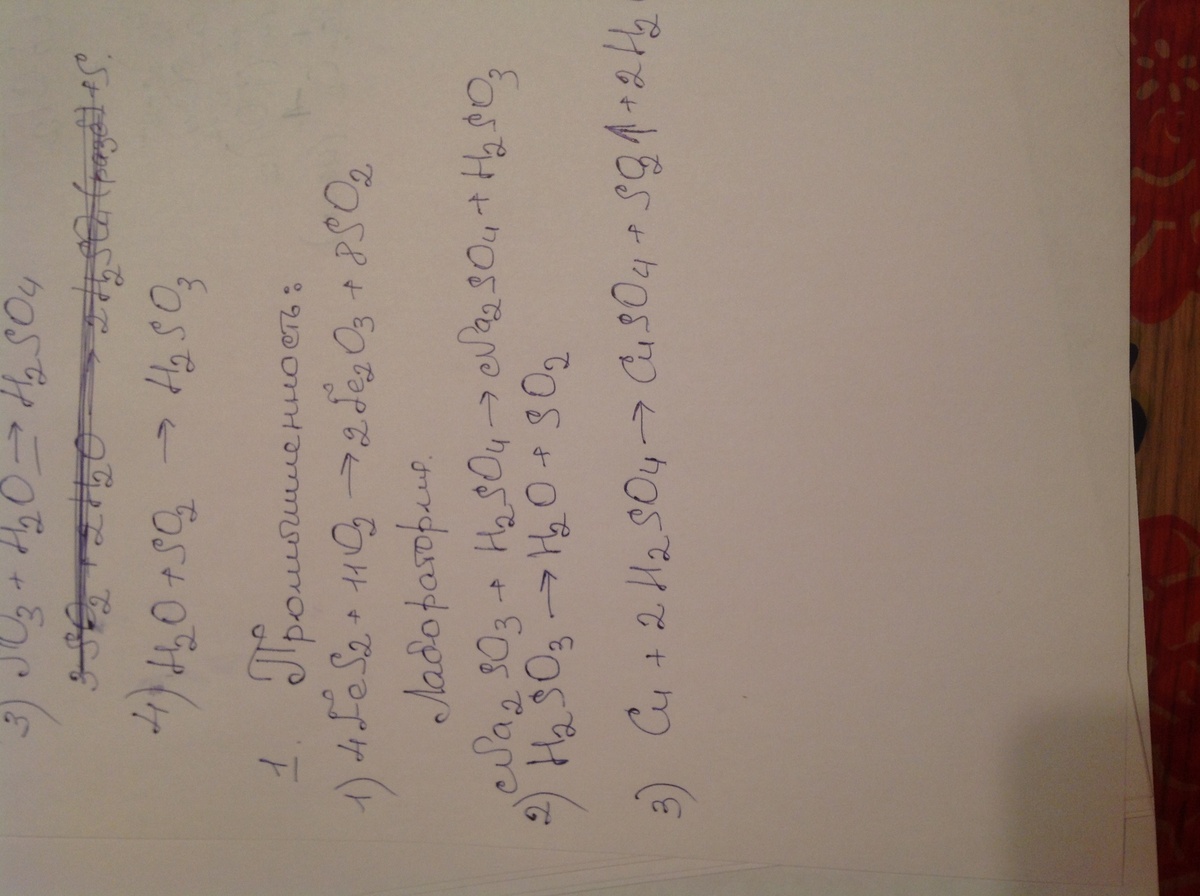 3) SO3 + H2O → H2SO4
3SO2 + 2H2O → 2H2SO4 (разб) + S.
4) H2O + SO2 → H2SO3
1. Промышленность:
1) 4FeS2 + 11O2 → 2Fe2O3 + 8SO2
Лаборатория.
Na2SO3 + H2SO4 → Na2SO4 + H2SO3
2) H2SO3 → H2O + SO2
3) Cu + 2H2SO4 → CuSO4 + SO2↑ + 2H2